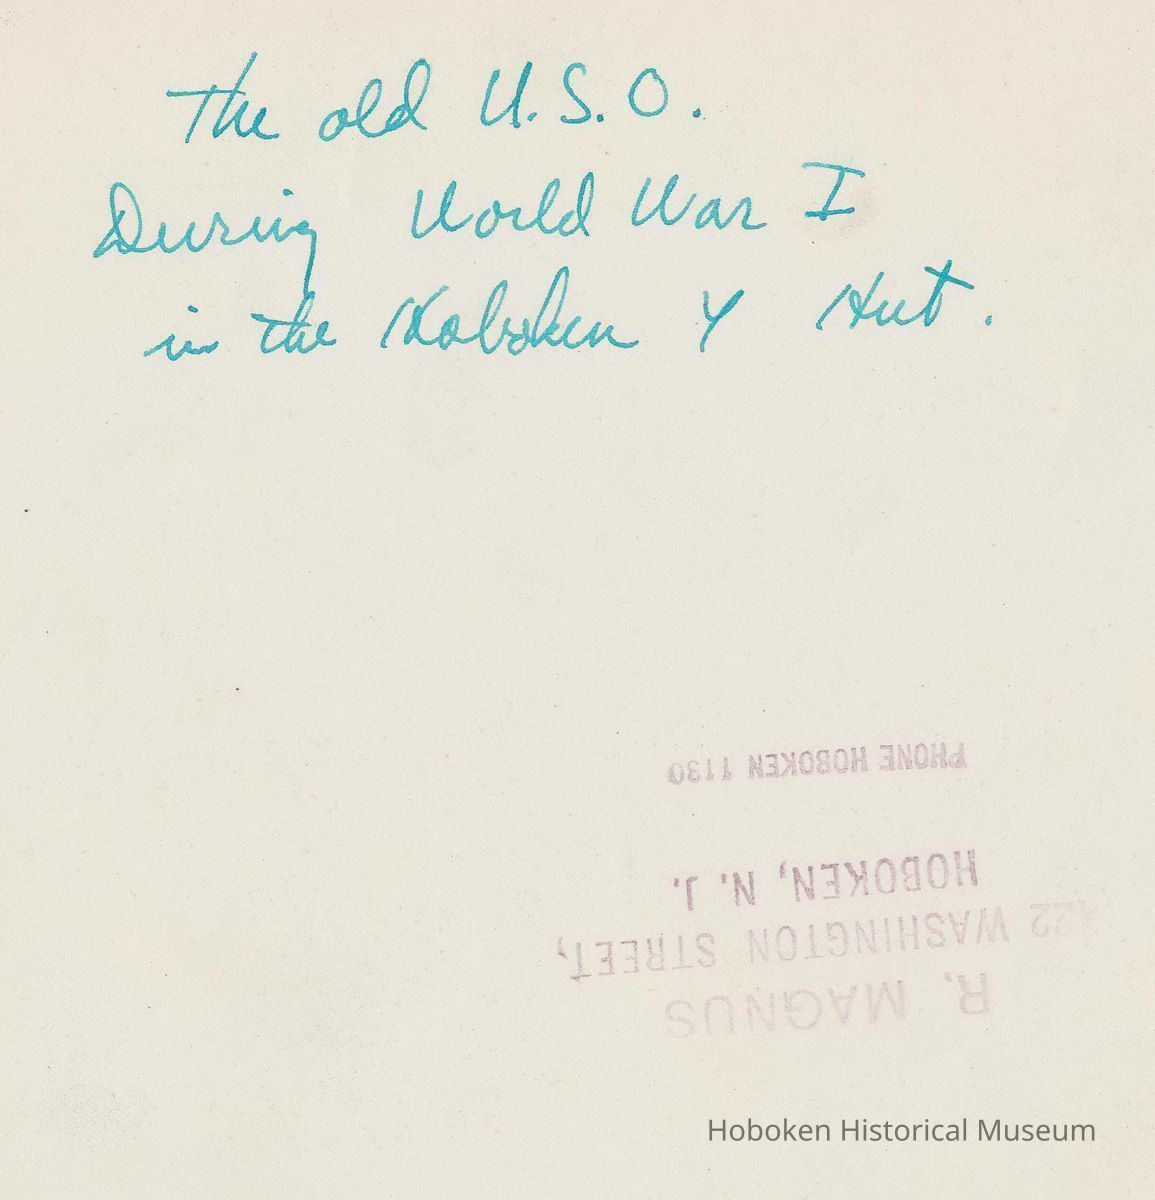 The old U.S.O.
During World War I
in the Hoboken Y Hut.
PHONE HOBOKEN 1130
HOBOKEN, N. J.
WASHINGTON STREET,
R. MAGNUS
Hoboken Historical Museum